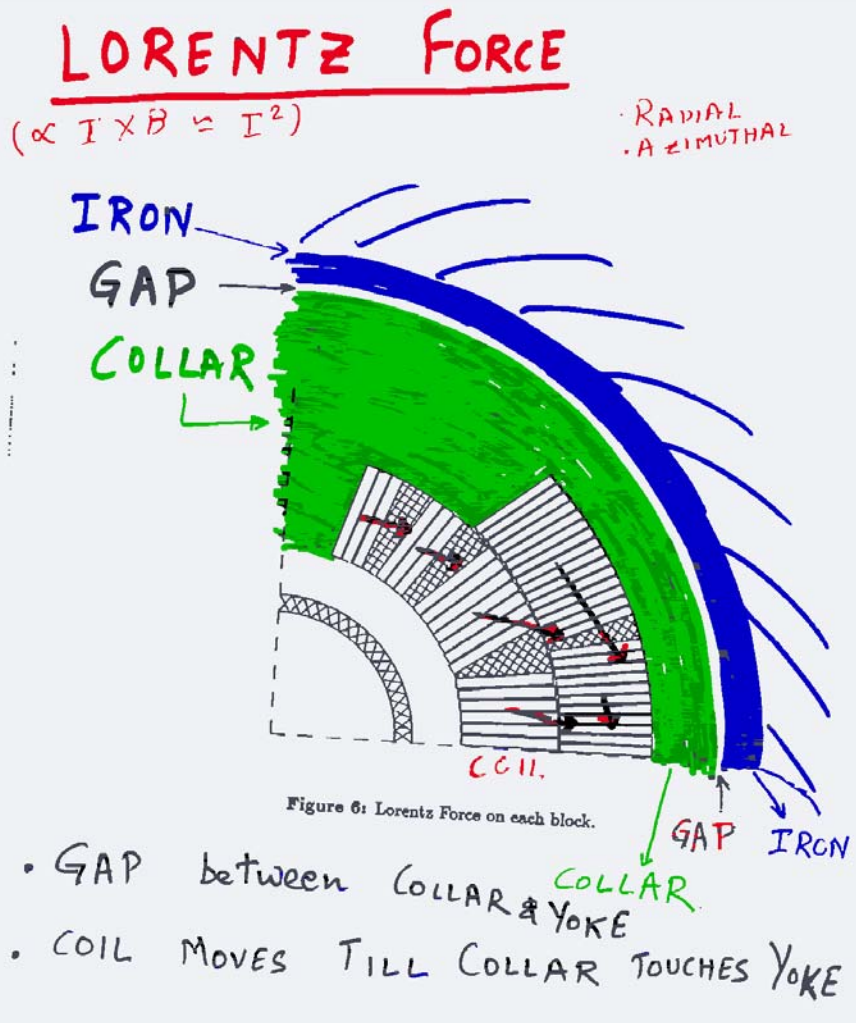 LORENTZ FORCE
(∝ I X B ≈ I²)
· RADIAL
· AZIMUTHAL
IRON
GAP
COLLAR
COIL
Figure 6: Lorentz Force on each block.
GAP
IRON
COLLAR
· GAP between COLLAR & YOKE
· COIL MOVES TILL COLLAR TOUCHES YOKE